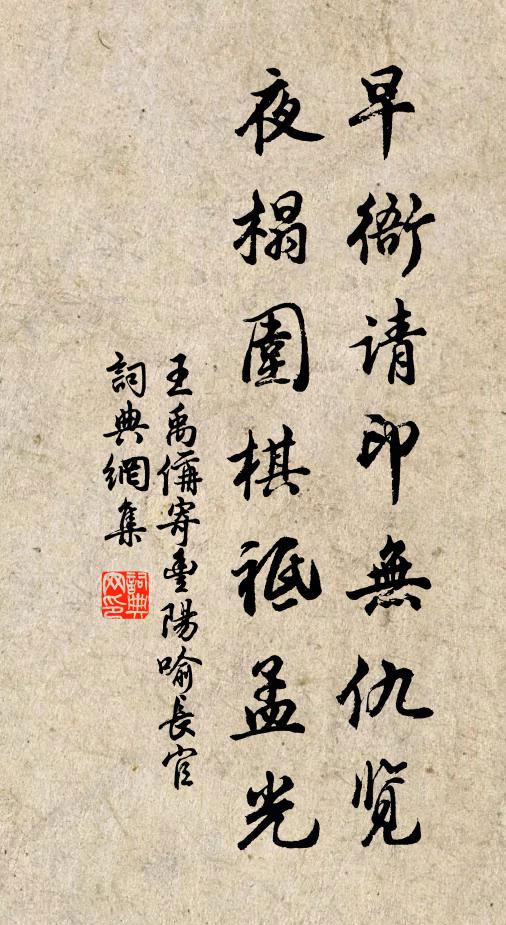 早衙请印無仇览
夜榻圍棋祗孟光
王禹偁寄豐陽喻長官
詞典網集
詞典网印